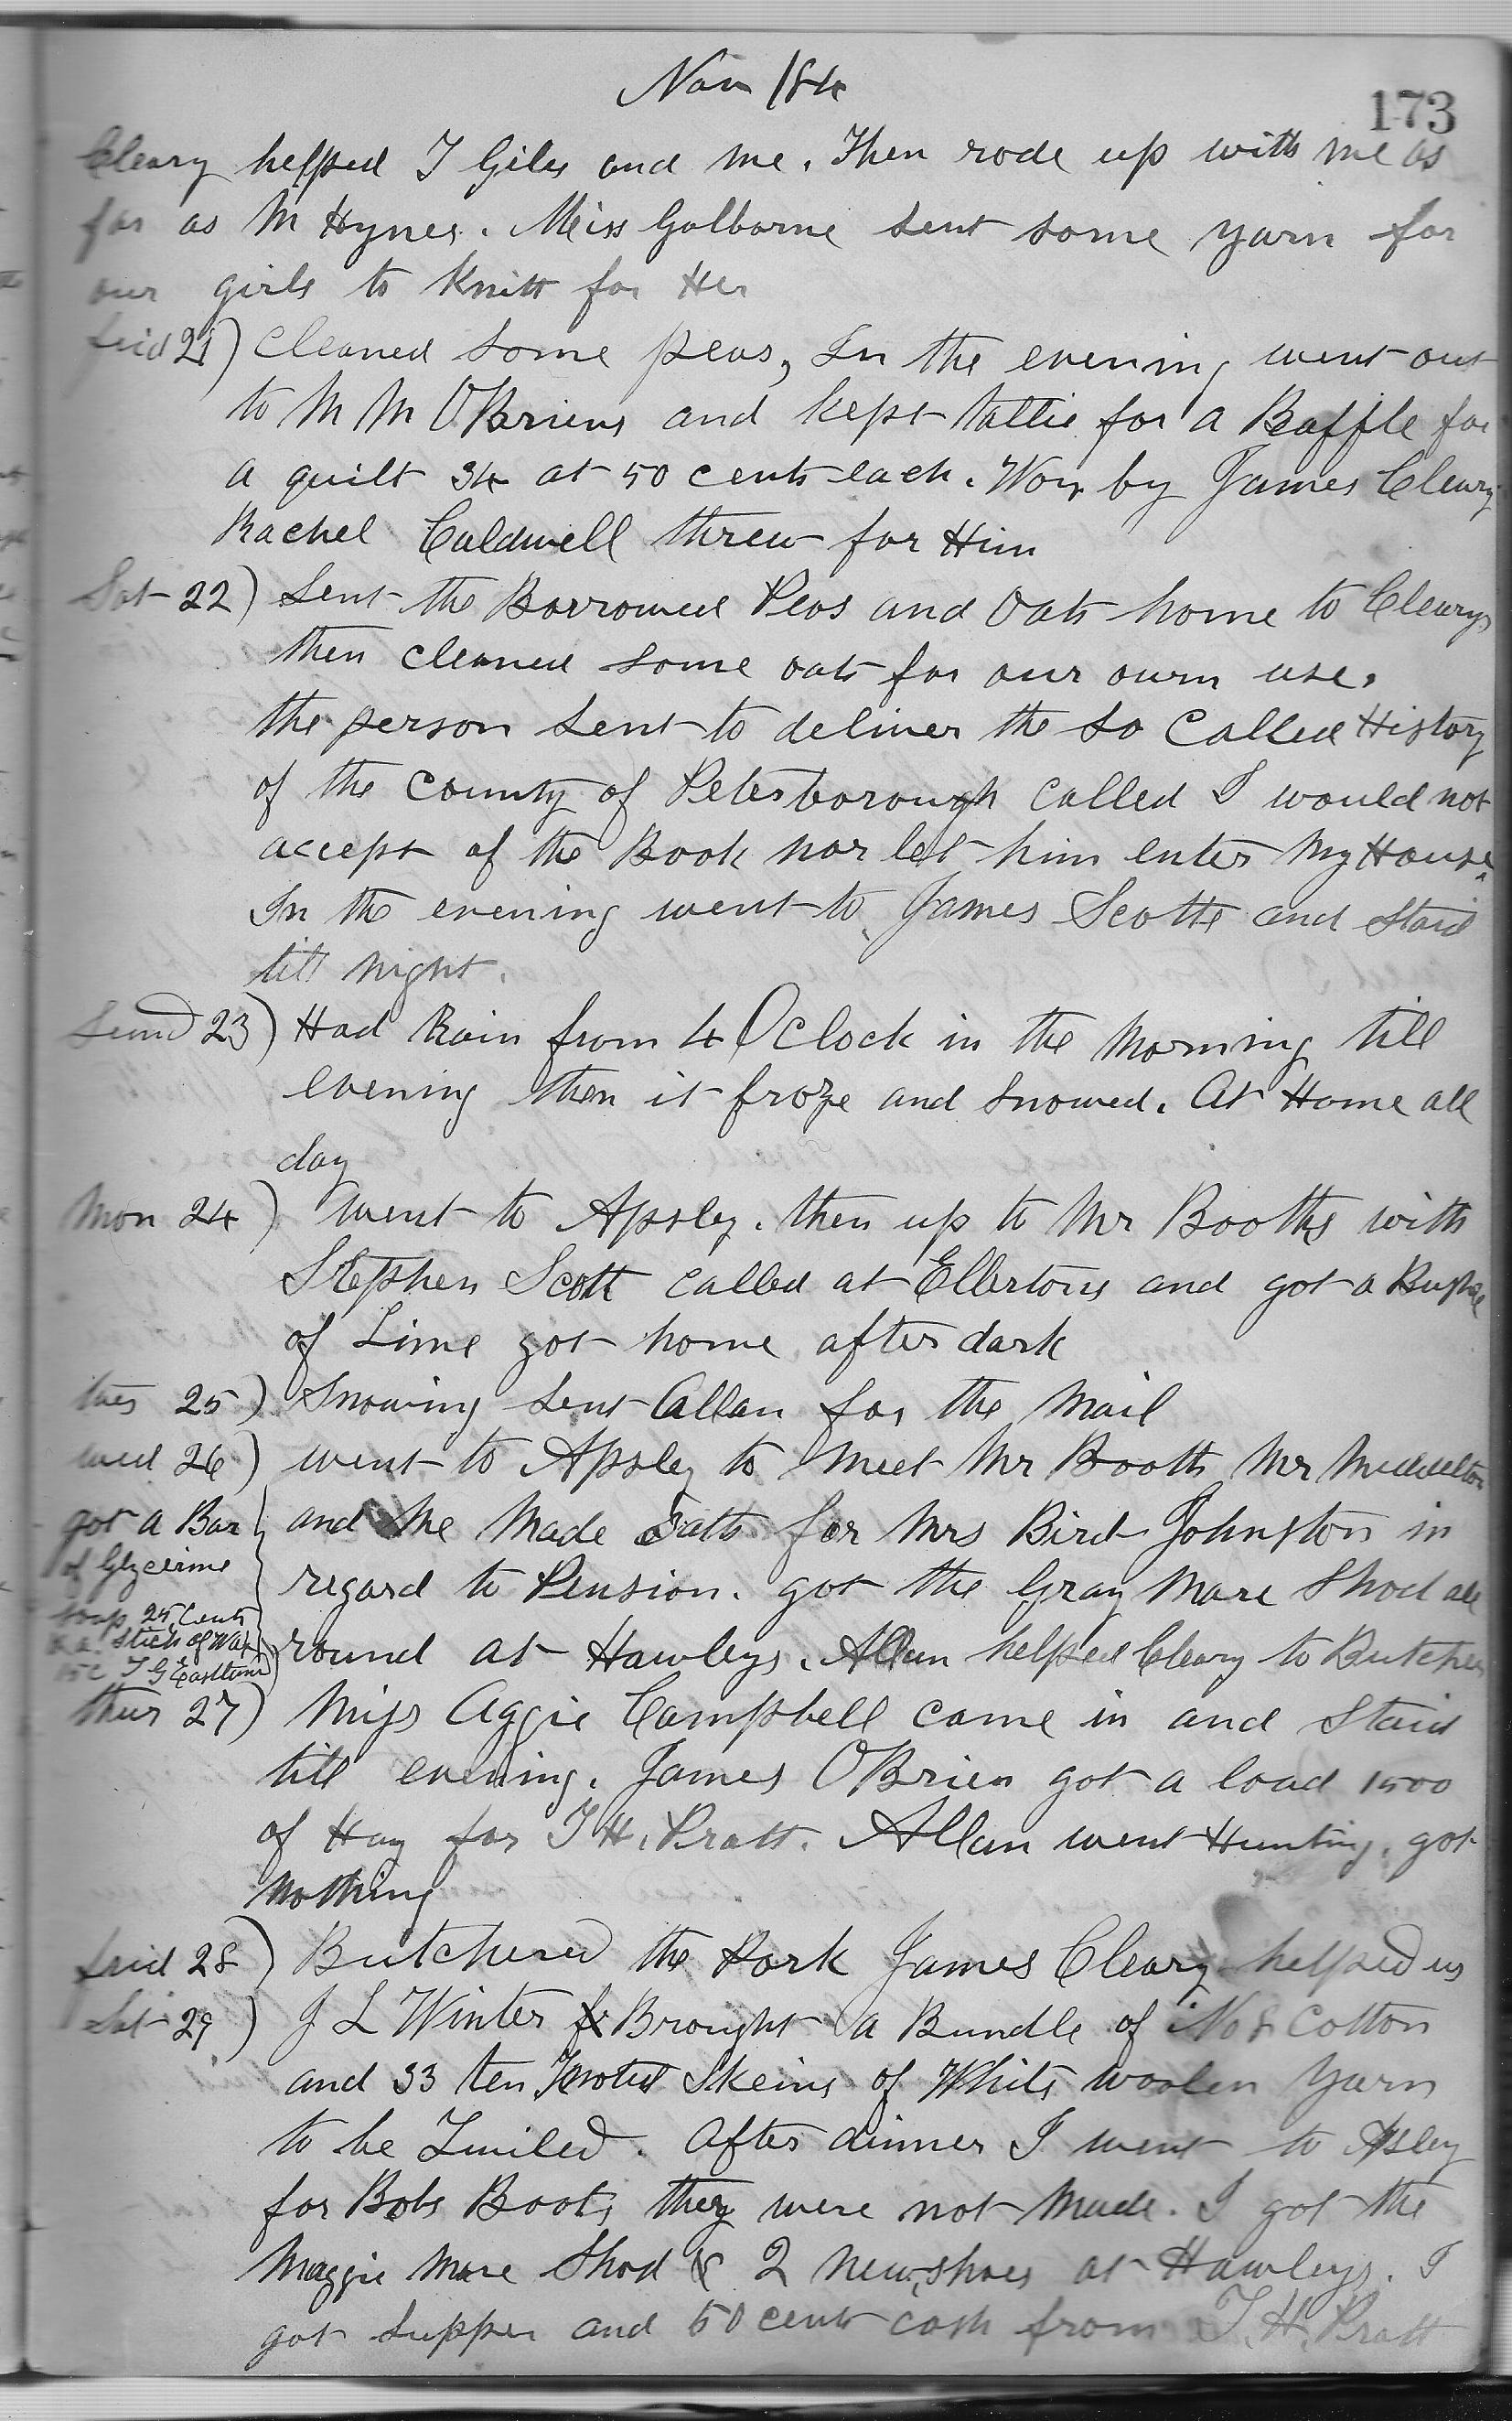 Nov /84
173
Cleary helped T Giles and me. Then rode up with me as
far as M Hynes. Miss Golborne sent some yarn for
our girls to Knitt for Her
frid 21) Cleaned some peas, In the evening went out
to M M OBriens and kept tallie for a Raffle for
a quilt 34 at 50 cents each. Won by James Cleary
Rachel Caldwell threw for Him
Sat 22) Sent the Borrowed Peas and Oats home to Clearys
then cleaned some oats for our own use.
the person sent to deliver the so Called History
of the County of Peterborough called I would not
accept of the Book nor let him enter My House.
In the evening went to James Scotts and Staid
till night.
Sund 23) Had Rain from 4 OClock in the Morning till
evening then it froze and snowed. At Home all
day
Mon 24) Went to Apsley. then up to Mr Booths with
Stephen Scott called at Ellertons and got a Bushel
of Lime got home after dark
tues 25) Snowing sent Allan for the Mail
wed 26) went to Apsley to Meet Mr Booth Mr Middelton
got a Bar
of Glycerine
soap 25 cents
& a Stick of Wax
15c T G Eastland
and Me Made Oath for Mrs Bird Johnston in
regard to Pension. got the Gray Mare Shod all
round at Hawleys. Allan helped Cleary to Butcher
thur 27) Miss Aggie Campbell came in and Staid
till evening. James OBrien got a load 1500
of Hay for T H. Pratt. Allan went Hunting. got
Nothing
frid 28) Butchered the Pork James Cleary helped us
Sat 29) J L Winter Brought a Bundle of No 8 Cotton
and 33 ten Skeins of White woolen Yarn
to be After dinner I went to Apsley
for Bobs Boots they were not Made. I got the
Maggie Mare Shod & 2 new shoes at Hawleys. I
got supper and 50 cents cash from T. H. Pratt